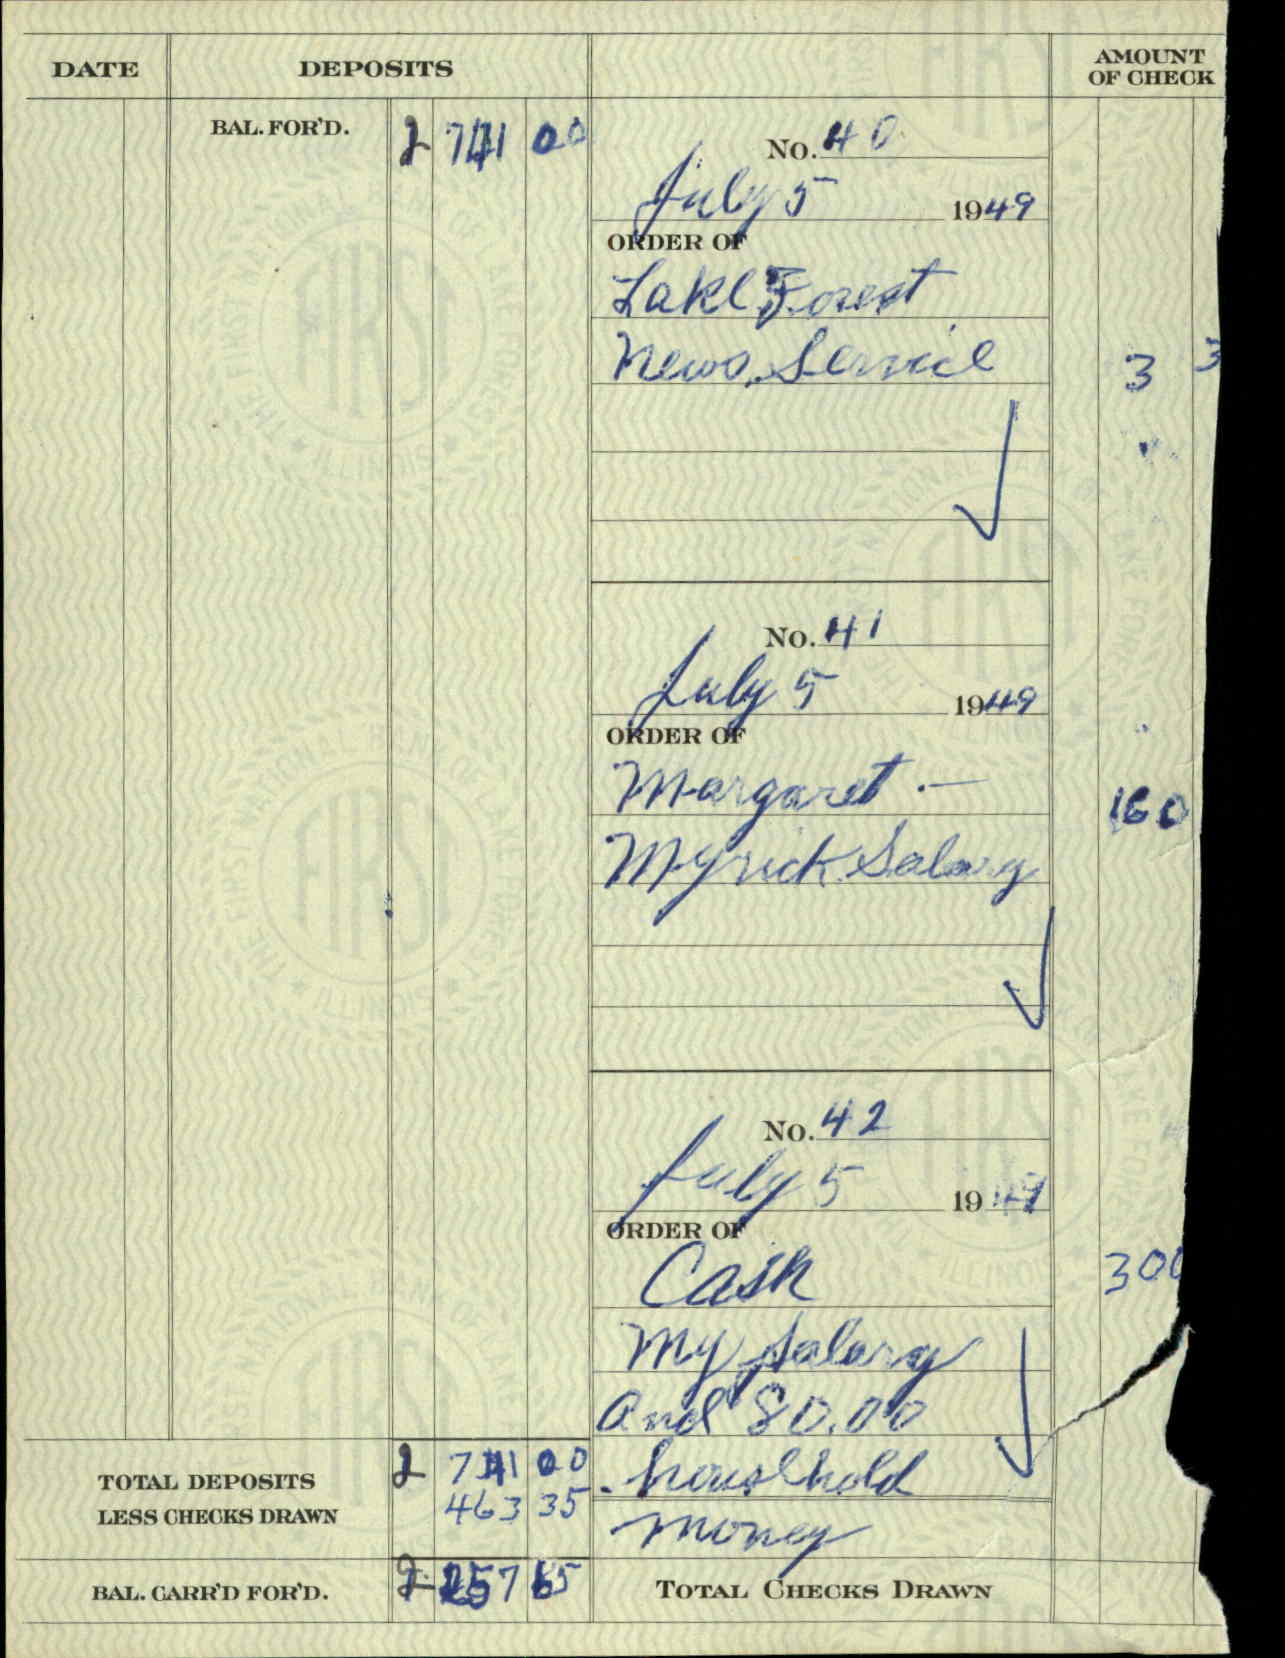 DATE DEPOSITS AMOUNT OF CHECK
BAL. FOR'D. 2 741 00
No. 40
July 5 1949
ORDER OF
Lake Forest
News Service 3 3
No. 41
July 5 1949
ORDER OF
Margaret .—
Myrick Salary 160
No. 42
July 5 1949
ORDER OF
Cash 300
My Salary
and 80.00
household
money
TOTAL DEPOSITS 2 741 00
LESS CHECKS DRAWN 463 35
BAL. CARR'D FOR'D.
TOTAL CHECKS DRAWN